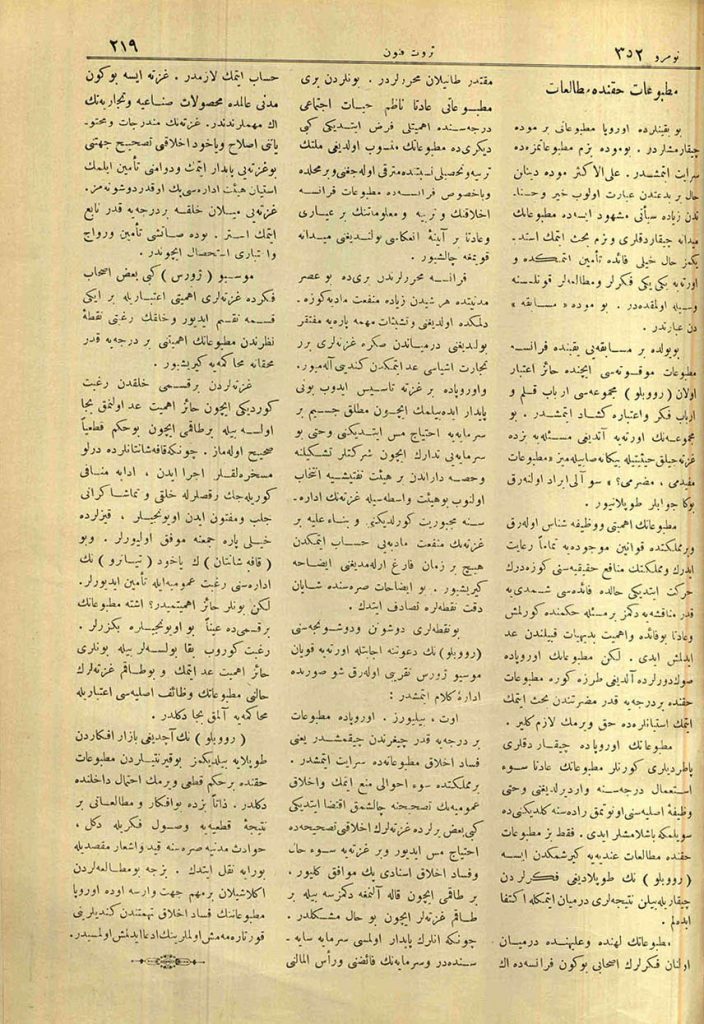 نومرو ٣٥٢
ثروت فنون
٢١٩
مطبوعات حقنده مطالعات
بو یقینلرده اوروپا مطبوعاتی بر موده
چیقارمشلردر . بوموده بزم مطبوعاتمزه‌ده
سرایت اتمشدر . علی‌الاکثر موده دینان
حال بر بدعتدن عبارت اولوب خیر و حسنا‌.
تدن زیاده سیأتی مشهود ایسه‌ده مطبوعاتك
میدانه چیقاردقلری و بزم بحث اتمك استد.
یکمز حال خیلی فائده تأمین اتمـکده و
اورته‌یه یکی یکی فکرلر ومطالعه‌لر قونلسنه
وسیله اولمقده‌در . بو موده « مسابقه »
دن عبارتدر .
بویولده بر مسابقه‌یی یقینده فرانسـه
مطبوعات موقوته‌سی ایچنده حائز اعتبار
اولان ( رووبلو ) مجموعه‌سی ارباب قـلم و
ارباب فکر واعتباره کشاد اتمشدر . بو
مجموعه‌نك اورته‌یه آتدیغی مسئله‌یه بزده
غزته‌جیلق حیثیتیله بیکانه صاییله‌میز «مطبوعات
مفیدمی ، مضرمی؟ » سو آلی ایراد اولنه‌رق
بوکا جوابلر طوپلانیور .
مطبوعاتك اهمیتی ووظیفه شناس اوله‌رق
وبرمملکتده قوانین موجوده‌یه تماماً رعایت
ایدرك ومملکتك منافع حقیقیه‌سنی کوزه‌درك
حرکت ایتدیکی حالده فائده‌سی شمـدی‌یه
قدر مناقشه‌یه دکمز بر مسئله حکمنده کورلمش
وعادتا بوفائده واهمیت بدیهیات قبیلندن عد
ایدلمش ایدی . لکن مطبوعاتك اوروپاده
صوك‌دورلرده آلدیغی طرزه کوره مطبوعات
حقنده بردرجه‌یه قدر مضرتندن بحث ایتمك
اتمك استیانلره‌ده حق ویرمك لازم کلیر .
مطبوعاتك اوروپاده چیقـار دقلری
پاطردیلری کورنلر مطبوعاتك عادتا سـوء
استعمال درجه‌سنه واردیرلدیغنی وحتی
وظیفهٔ اصلیه‌سنی اونوتمق راده‌سنه کلدیکنی‌ده
سویلمکه باشلامشلر ایدی . فقط بز مطبوعات
حقنده مطالعات عندیه‌یه کیرشمکدن ایسـه
( رووبلو ) نك طوپلادیغی فکـرلر دن
چیقاریله‌بیلن نتیجه‌لری درمیان ایتمکله اکتفا
ایده‌لم .
مطبوعاتك لهنده وعلیهنده درمیـان
اولنان فکرلرك اصحابی بوکون فرانسه‌ده اك
مقتدر طانیلان محررلردر . بونلردن بری
مطبـوعاتی عادتا ناظم حیـات اجتماعی
درجه‌سـنده اهمیتلی فرض ایتدیکی کبی
دیکری‌ده مطبوعاتك منسوب اولدیغی ملتك
تربیه وتحصیلی نسبتنده مترقی اوله‌جغنی وبرمحلده
وباخصوص فرانسـه‌ده مطبوعات فرانسـه
اخلاقنك و تربیه و معلوماتنك بر عیـاری
وعادتا بر آینهٔ انعکاسی بولنـدیغنی میـدانه
قویمغه چالشیور .
فرانـسه محررلرندن بری‌ده بو عصر
مدنیتده هر شیدن زیاده منفعت مادیه کوزه‌.
دلمکده اولدیغنی وتشبثات مهمه پاره‌یه مفتقر
بولندیغنی درمیاندن صکره غزته‌لری بر‌ر
تجارت اشیاسی عد ایتمکدن کندیی آله‌میور.
واوروپاده بر غزته تاسیس ایدوب بونی
پایدار ایده‌بیلمك ایچون مطلق جسیم بر
سرمایه‌یه احتیاج مس ایتدیکنی وحتی بو
سرمایه‌یی تدارك ایچون شرکتلر تشکیلنه
وحصـه داراندن بر هیئت تفتیشیه انتخاب
اولنوب بوهیئت واسطه‌سیله غزته‌نك اداره‌.
سنه مجبوریت کورلدیکنی و بناء علیه بر
غزته‌نك منفعت مادیه‌یی حساب ایتمکدن
هیچ بر زمان فارغ اوله‌مدیغی ایضاحه
کیریشیور . بو ایضاحات صره‌سنده شـایان
دقت نقطه‌لره تصادف ایتدك .
بونقطه‌لری دوشونن ودوشونجه‌سنی
(رووبلو) نك دعوتنه اجابتله اورته‌یه قویان
موسیو ژورس تقریبی اوله‌رق شو صورتده
ادارهٔ کلام ایتمشدر :
اوت ، بیلیورز . اوروپاده مطبوعات
بر درجه‌یه قدر چیغرندن چیقمشـدر یعنی
فساد اخلاق مطبوعاته‌ده سرایت ایتمشدر .
برمملکتده سوء احوالی منع ایتمك واخلاق
عمومیه‌نك تصحیحنه چالشمق اقتضا ایتدیکی
کبی بعض برلرده غزته‌لرك اخلاقنی تصحیحه‌ده
احتیاج مس ایدیور وبر غزته‌یه سـوء حال
وفساد اخلاق اسنادی پك موافق کلیور .
بر طاقمی ایچون قاله آلنمغه دکمزسه بیله بر
طـاقم غزته‌لر ایچون بو حال مشـکلدر .
چونکه انلرك پایدار اولمسی سرمایه سایه‌-
سنـده‌در وسرمایه‌نك فائضنی ورأس المالنی
حساب ایتمك لازمدر . غزته ایسه بوکون
مدنی عالمده محصولات صناعیه وتجاریه‌نك
اك مهملرندندر . غزته‌نك مندرجات ومحتو‌.
یاتنی اصلاح ویاخود اخلاقنی تصحیح جهتنی
بوغزته‌یی پایدار ایتمك ودوامنی تأمین ایلمك
استیان هیئت اداره‌سی پك اوقدر دوشونه‌مز.
غزته‌یی میـلان خلقـه بردرجه‌یه قدر تابع
ایتمك استر . بوده صـاتشنی تأمین ورواج
واعتباری استحصال ایچوندر .
موسـیو ( ژورس ) کبی بعض اصحاب
فکرده غزته‌لری اهمیتی اعتبـاریله بر ایکی
قسمه تقسیم ایدیور وخلقك رغبتی نقطهٔ
نظرندن مطبوعاتك اهمیتنی بر درجه‌یه قدر
محقانه محاکمه‌یه کیریشیور .
غزته‌لردن برقسمی خلقدن رغبت
کوردیکی ایچون حائز اهمیت عد اولنمق بجا
اولسـه بیله برطاقمی ایچون بوحکم قطعیاً
صحیح اوله‌ماز . چونکه قافه شانتانلرده درلو
مسخره‌لقلر اجرا ایدن ، ادابه منـافی
کوریله‌جك رقصلر له خلقی و تماشـاکرانی
جلب ومفتون ایدن اویونجیلر ، قیزلرده
خیـلی پاره جمعنه موفق اولیورلر . وبو
( قافه شانتان ) ك یاخود ( تیـاترو ) نك
اداره‌سنی رغبت عمومیه‌ایله تأمین ایدیورلر.
لکن بونلر حائز اهمیتمیدر؟ اشته مطبوعاتك
برقسمی‌ده عیناً بو اویونجیلره بکزرلر .
رغبت کوروب بقا بولسه‌لر بیله بونلری
حائز اهمیت عد ایتمك و بوطاقم غزته‌لرك
حالنی مطبوعاتك وظائف اصلیه‌سی اعتباریله
محاکمه‌یه آلمق بجا دکلدر .
( رووبلو ) نك آچدیغی بازار افکاردن
طوپلایه بیلدیکمز بوقیرنتیلردن مطبوعات
حقنده برحکم قطعی ویرمك احتمال داخلنده
دکلدر . ذاتاً بزده بوافکار و مطالعاتی بر
نتیجهٔ قطعیه‌یه وصول فکریله دکل ،
حوادث مدنیه صره‌سنه قید واشعار مقصدیله
بورایه نقل ایتدك . بزجه بومطالعه‌لردن
اکلاشیلان برمهم جهت وارسه اوده اوروپا
مطبوعاتنك فساد اخلاق تهمتندن کندیلرینی
قورتاره‌مه‌مش اولملرینك ادعا ایدلمش اولمسیدر.